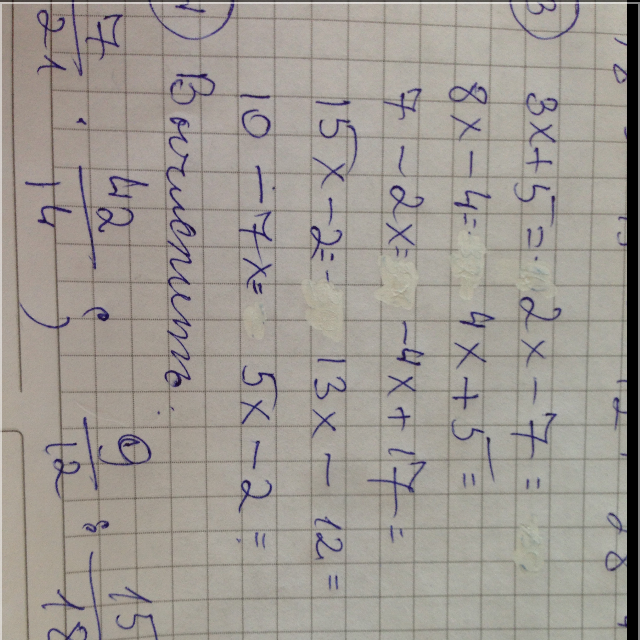 3
3x + 5 = 2x - 7 =
8x - 4 = 4x + 5 =
7 - 2x = -4x + 17 =
15x - 2 = 13x - 12 =
10 - 7x = 5x - 2 =
Вычислить:
7/21 · 42/14 ; 9/12 : 15/18